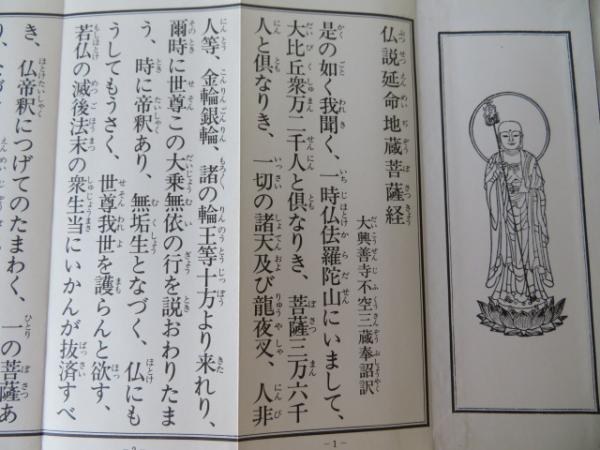 仏説延命地蔵菩薩経
大興善寺不空三蔵奉詔訳
是の如く我聞く、一時仏佉羅陀山にいまして、
大比丘衆万二千人と倶なりき、菩薩三万六千
人と倶なりき、一切の諸天及び龍夜叉、人非
人等、金輪銀輪、諸の輪王等十方より来れり、
爾時に世尊この大乗無依の行を説おわりたま
う、時に帝釈あり、無垢生となづく、仏にも
うしてもうさく、世尊我世を護らんと欲す、
若仏の滅後法末の衆生当にいかんが抜済すべ
き、仏帝釈につげてのたまわく、一の菩薩あ
-1-